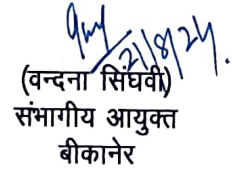 21/8/24.
(वन्दना सिंघवी)
संभागीय आयुक्त
बीकानेर